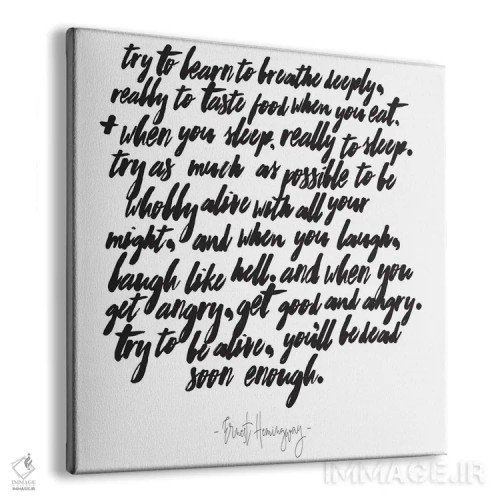 try to learn to breathe deeply,
really to taste food when you eat.
+ when you sleep, really to sleep.
try as much as possible to be
wholly alive with all your
might, and when you laugh,
laugh like hell. and when you
get angry, get good and angry.
try to be alive, you'll be dead
soon enough.
- Ernest Hemingway -
IMMAGE
WWW.IMMAGE.IR
IMMAGE.IR